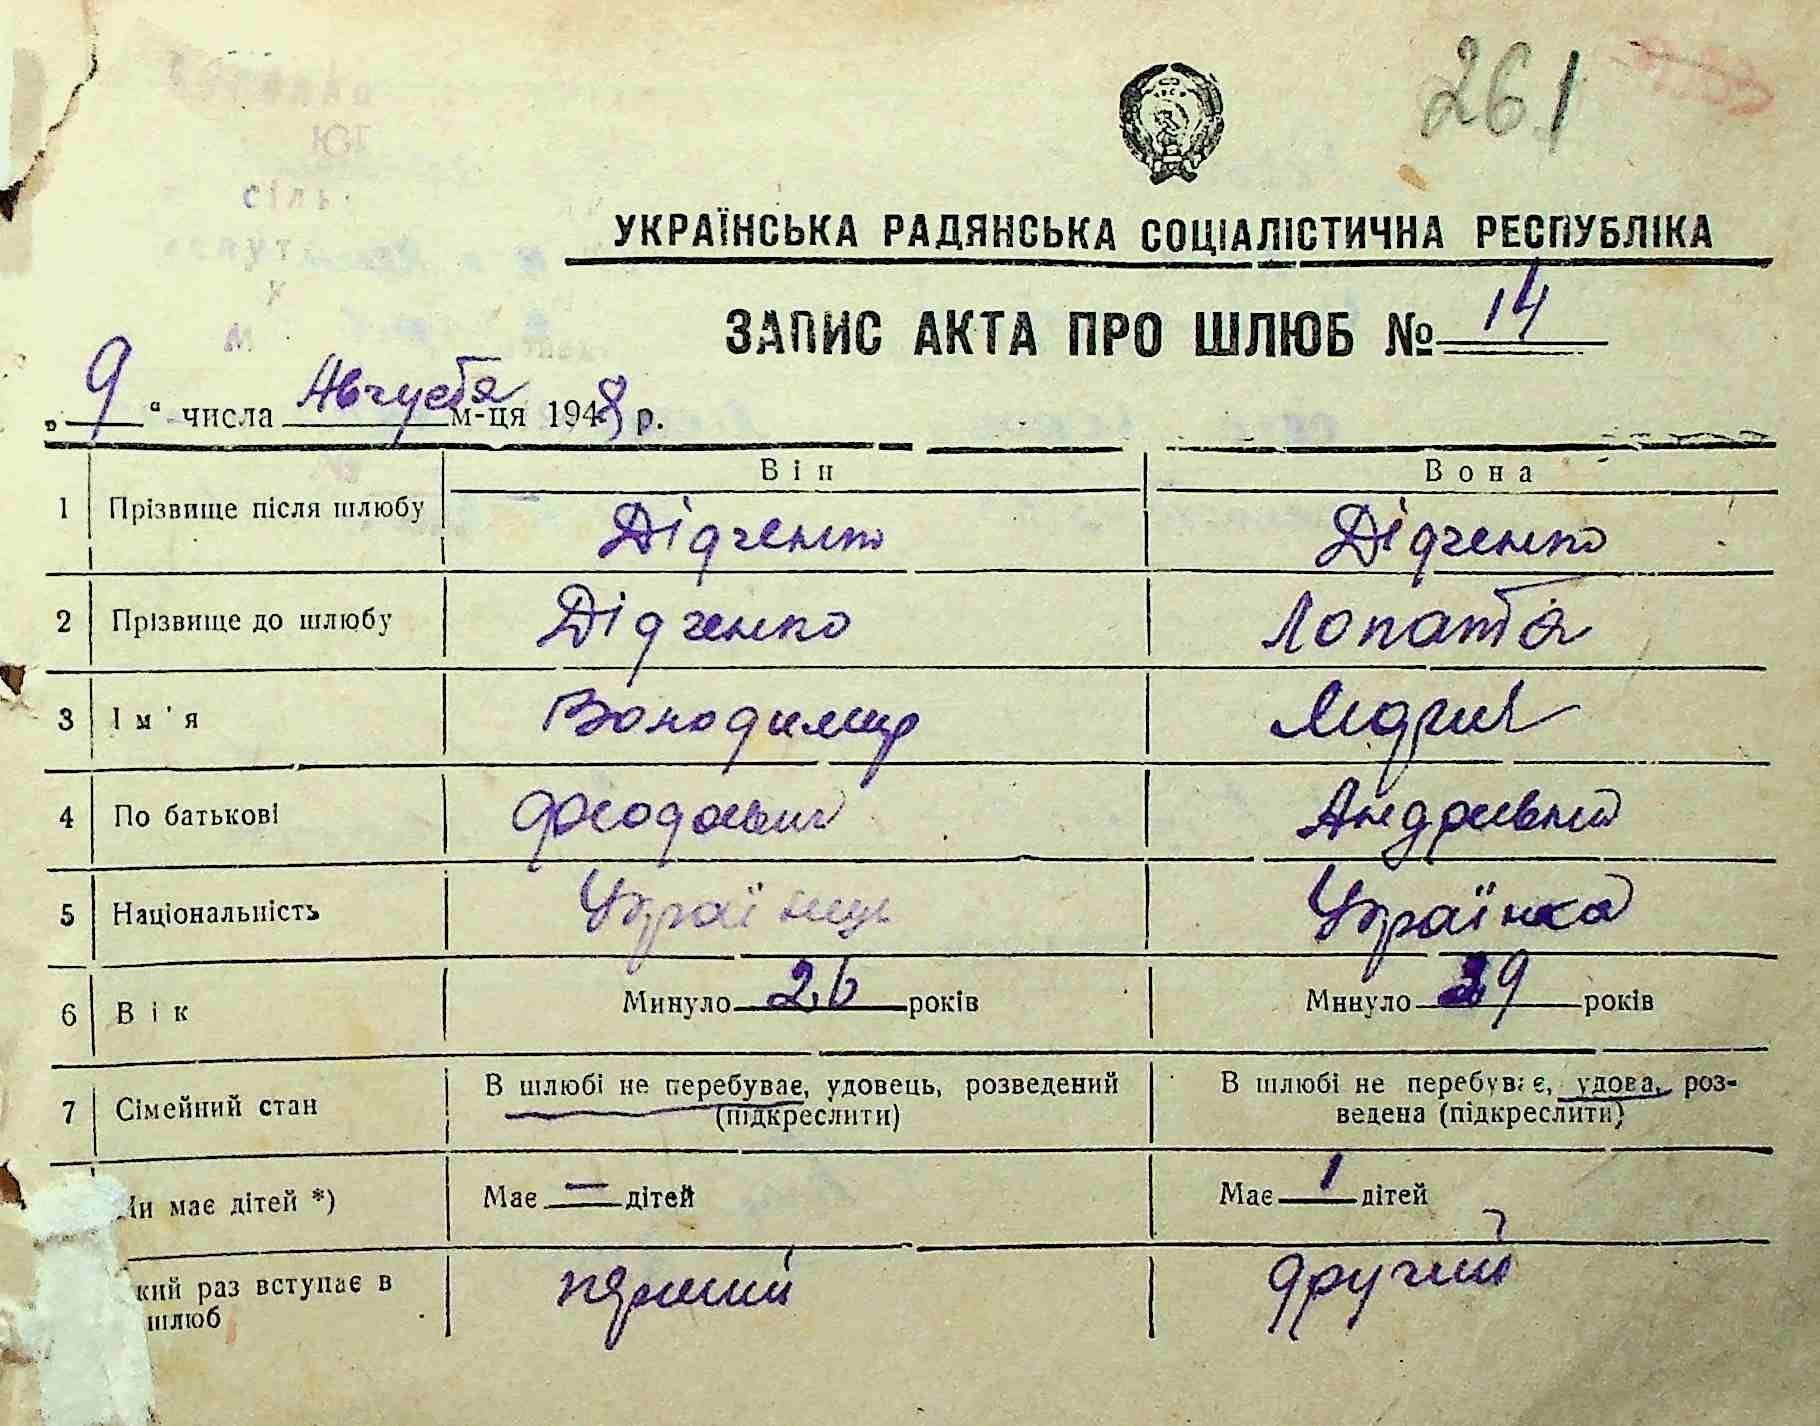 261
УКРАЇНСЬКА РАДЯНСЬКА СОЦІАЛІСТИЧНА РЕСПУБЛІКА
ЗАПИС АКТА ПРО ШЛЮБ № 14
„ 9 “ числа Августа м-ця 1948 р.
Він Вона
1 Прізвище після шлюбу Дідченко Дідченко
2 Прізвище до шлюбу Дідченко Лопата
3 Ім'я Володимир
4 По батькові
5 Національність Українець Українка
6 Вік Минуло 26 років Минуло 29 років
7 Сімейний стан В шлюбі не перебуває, удовець, розведений (підкреслити) В шлюбі не перебуває, удова, роз-
ведена (підкреслити)
Чи має дітей *) Має — дітей Має 1 дітей
кий раз вступає в шлюб перший другий